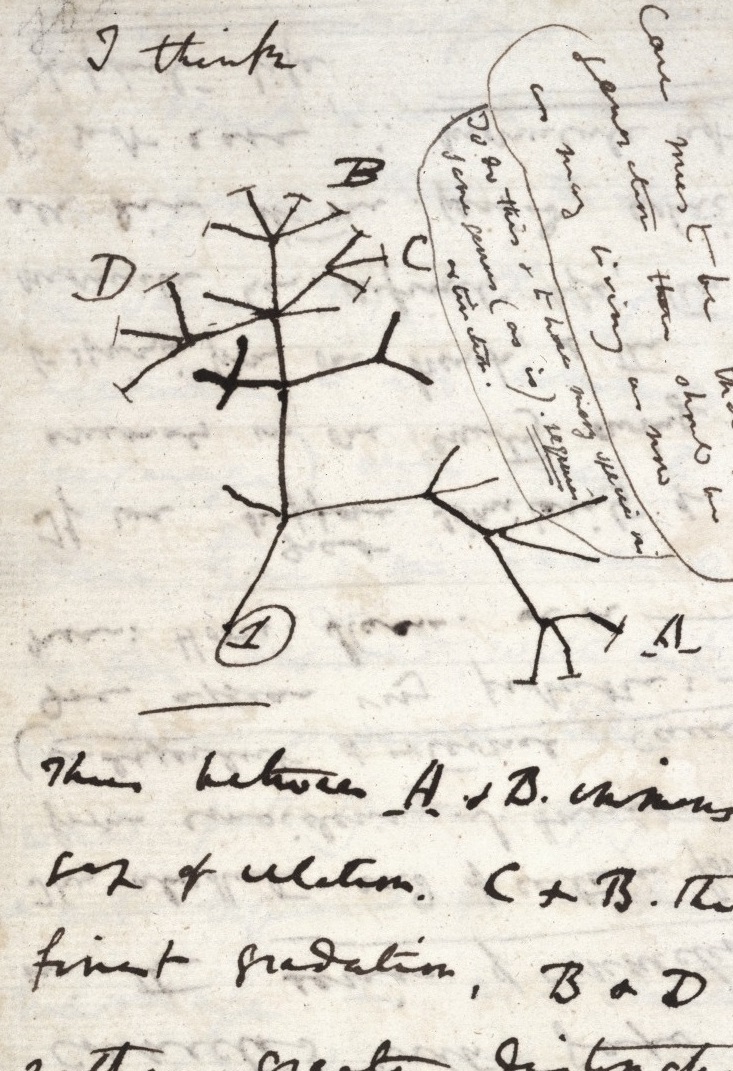 I think
B
C
D
A
1
Case must be that
generation then should be
as many living as now
To do this & to have many species in
same genus (as is). requires
extinction.
Thus between A & B. immens
gap of relation. C & B. The
finest gradation, B & D
rather greater distinct